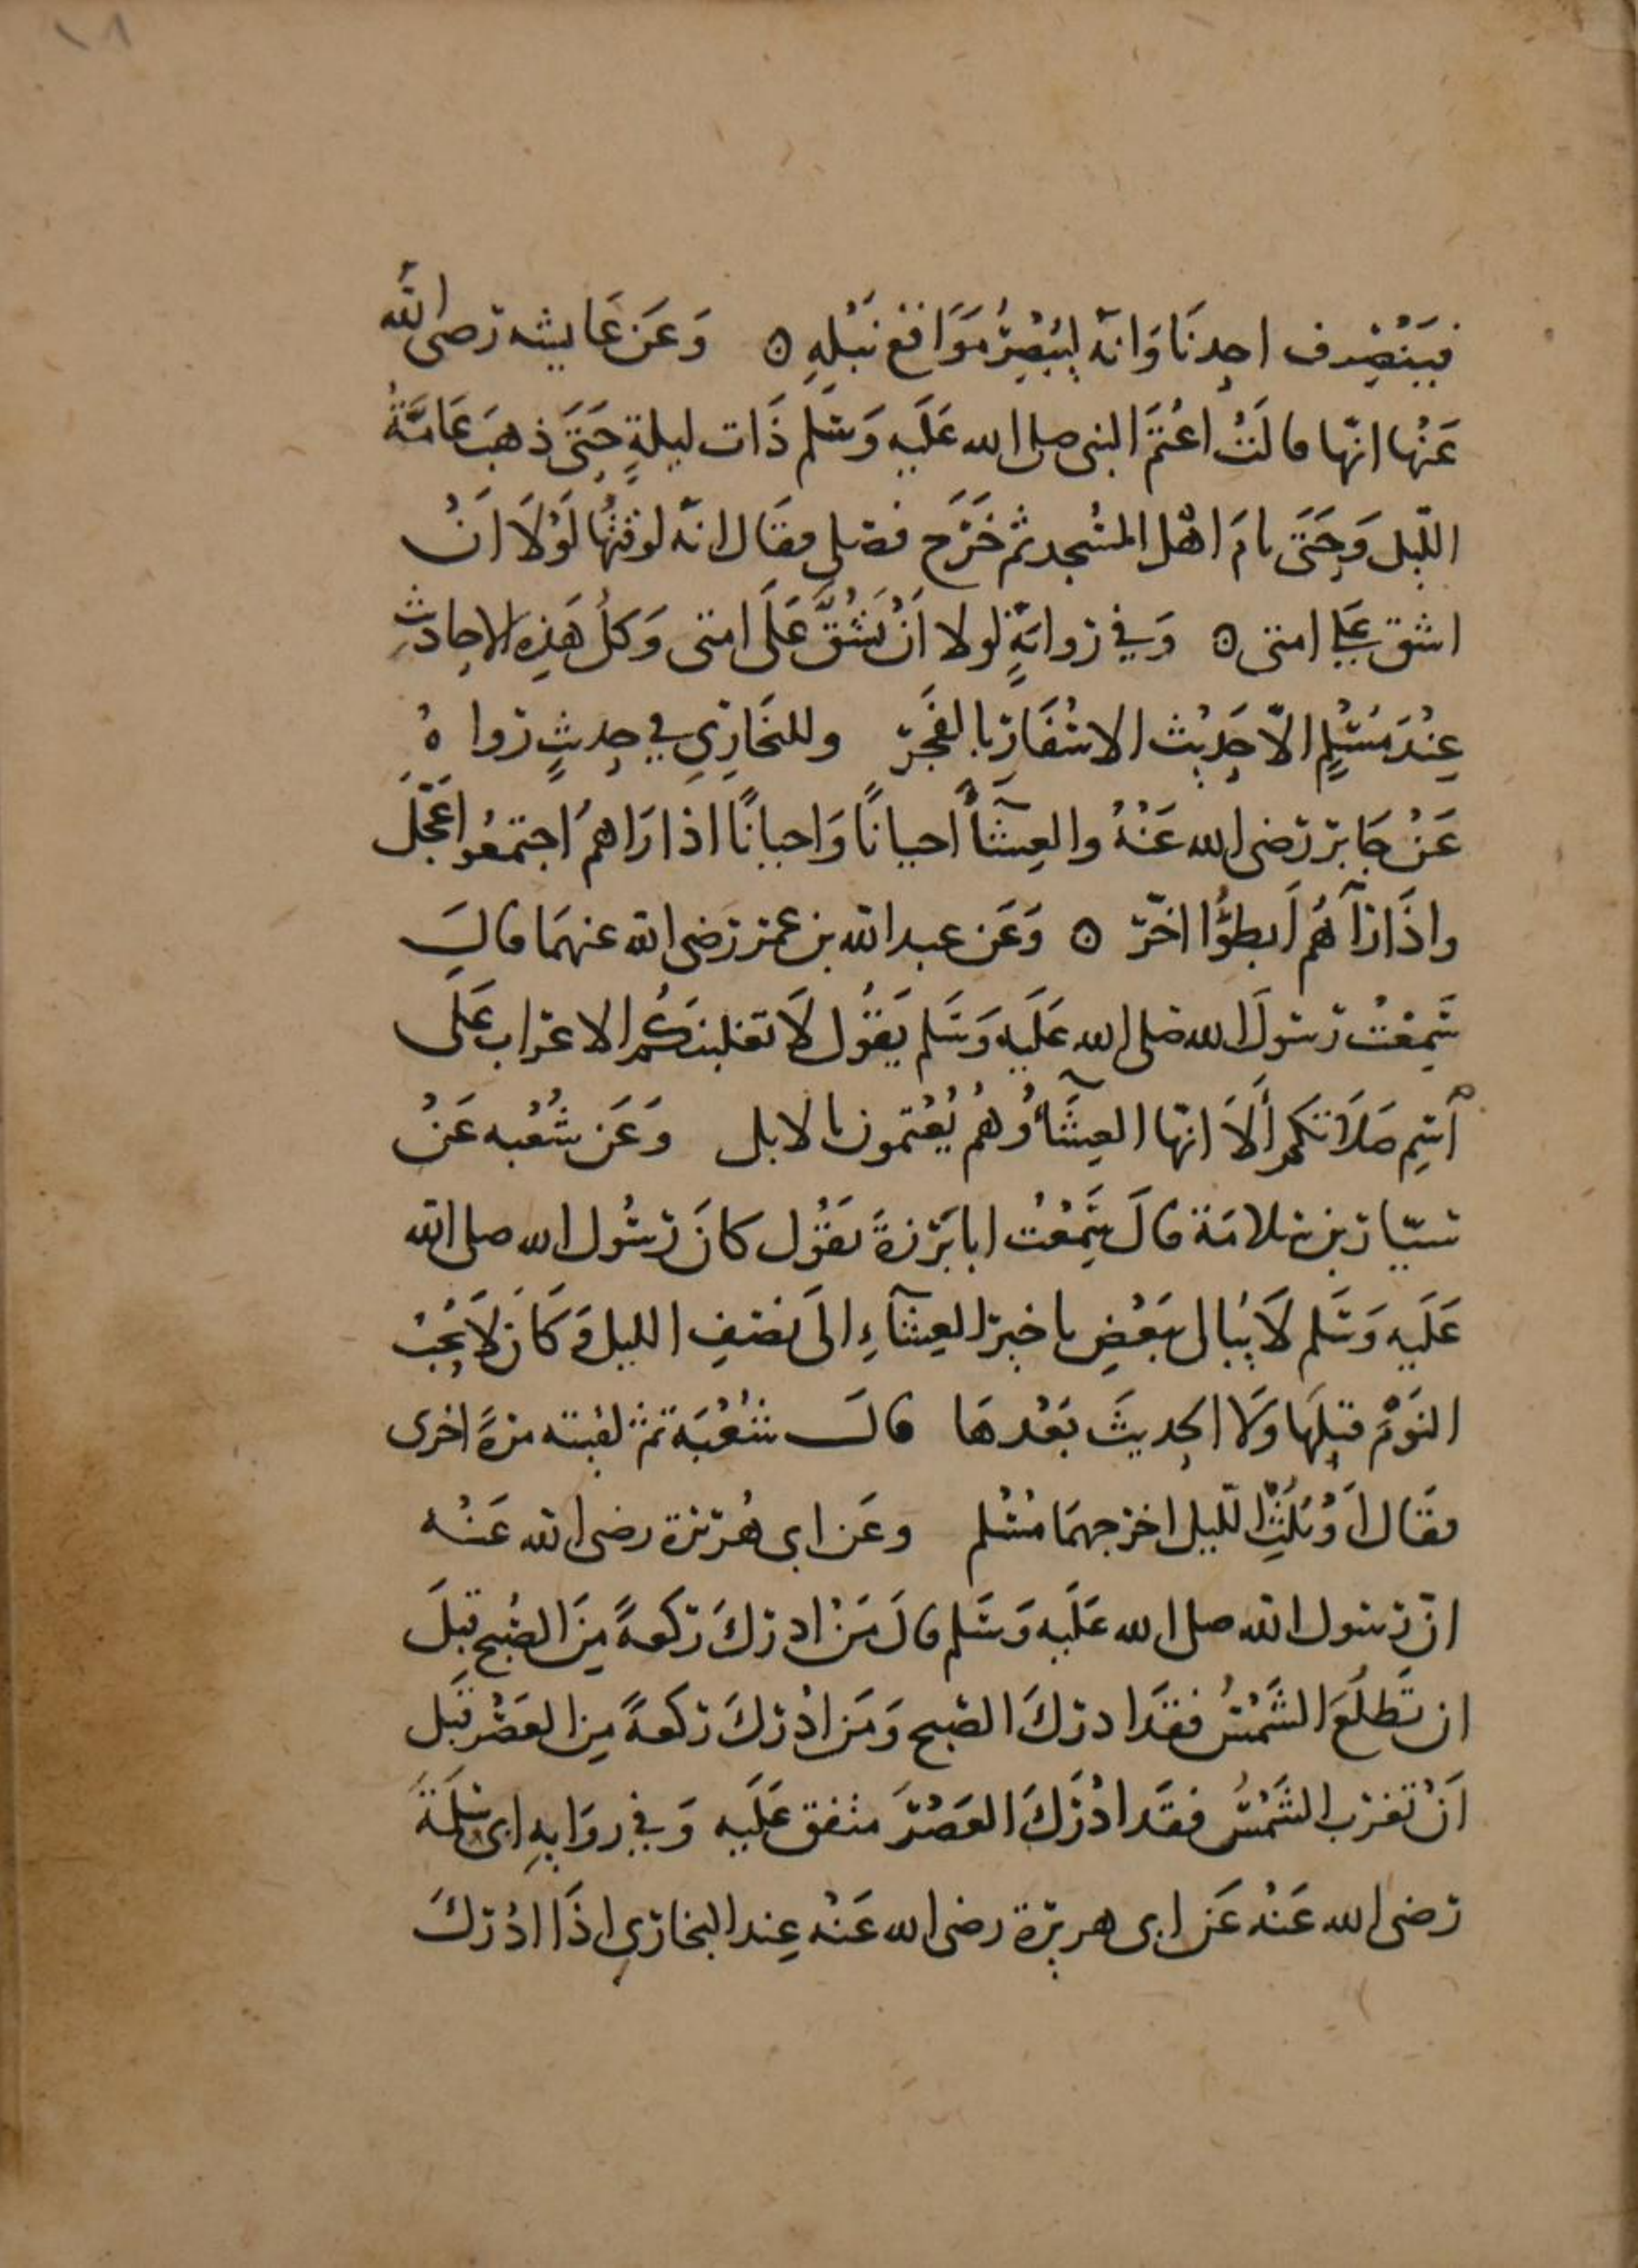 ١٨
فيَنْصَرِف احدنَا وَانه ليُبْصِرُ مَوَاقع نَبْلِهِ ٥ وَعَن عَايشه رَضى الله
عَنْها انّها قالَتْ اعْتَمَ النبى صلى الله عَلَيه وَسَلم ذَات ليلةٍ حَتىَ ذهبَ عَامَّةُ
اللّيل وَحَتىَ نامَ اهْل المسْجد ثم خَرَج فصَلى فقَال انه لوقتُها لَوْلَا اَنْ
اشق عَلى امتى ٥ وَفي رَوايَةٍ لولا اَنْ نَشُقَّ عَلَى امتى وَكلُ هَذِه الاحادثِ
عِنْدَ مُسْلمٍ الاّ حَدِيْث الاسْفَار بالفَجر وللبخَارِي في حديثٍ رَوا هُ
عَنْ جَابر رَضى الله عَنْهُ والعِشآأً احيانًا وَاحيانًا اذا رَاهمُ اجتمَعُوا عَجّلَ
واذَا رَآهُم اَبطؤُا اخّر ٥ وَعَن عبد الله بن عمر رَضى الله عنهمَا قالَ
سَمِعْت رَسولَ الله صَلى الله عَلَيه وَسَلم يَقُول لَا تغلبنكُم الاعراب عَلَى
اسْم صَلَاتكم أَلَا انّها العِشَآءُ وُهُم يُعْتمون بالابل وَعَن شُعْبه عَنْ
سيّار بن سَلامَة قالَ سَمِعْت ابا بَرْزَةَ يقُول كانَ رَسُول الله صلى الله
عَلَيه وَسَلم لَا يُبالى بَعْضِ تاخير العِشآءِ الَى نصْفِ الليل وَكَانَ لَا يُحِبُ
النَوْمَ قبلَهَا وَلَا الحديثَ بَعْدهَا قالَ شُعْبَة ثم لقيته مرَةً اخرى
فقَال أَوْ ثُلُثِ الّليل اخرجهمَا مُسْلم وعَن ابى هُرَيرة رضى الله عَنْه
انّ رَسول الله صلى الله عَلَيه وَسَلم قالَ مَنْ ادرَكَ رَكعةً مِنَ الصُبح قبلَ
ان تَطلُعَ الشَمْسُ فقَد ادرَكَ الصّبح وَمَن ادْرَكَ رَكعةً مِن العَصْر قَبل
اَنْ تغرب الشَمْسُ فقَد ادْرَكَ العَصْرَ متفق عَلَيه وَفي روَايهِ ابى سَلَمَةَ
رَضى الله عَنْه عَن ابى هريرة رضى الله عَنْه عِند البخارَي اذَا ادْرَكَ